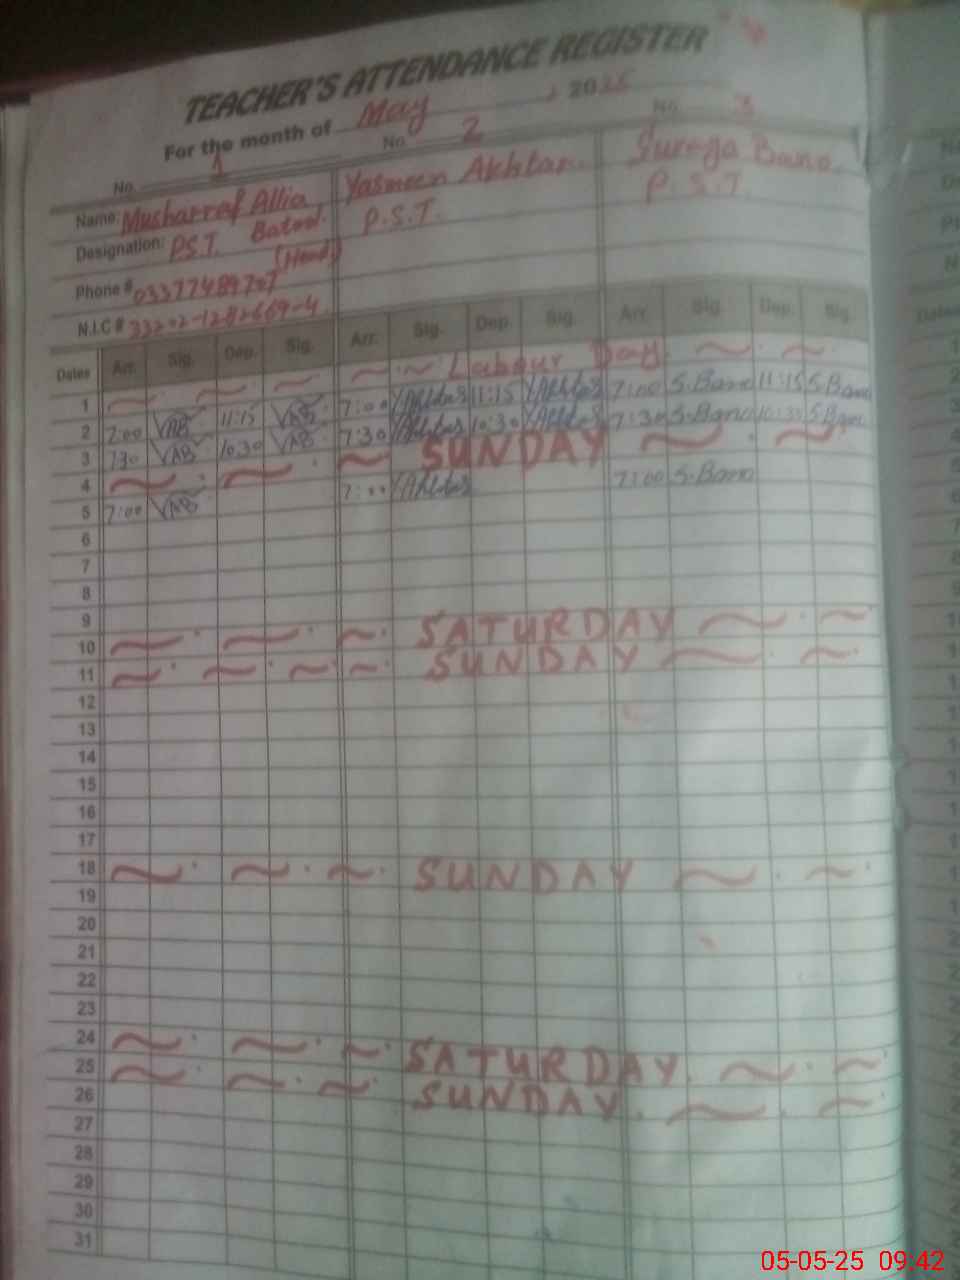 TEACHER'S ATTENDANCE REGISTER
For the month of May 2025
No. 1 No. 2 No. 3
Name: Musharraf Allia Batool Yasmeen Akhtar Surayya Bano
Designation: P.S.T. (Head) P.S.T. P.S.T.
Phone # 03377489707
N.I.C # 33202-1282669-4
Dates Arr. Sig. Dep. Sig. Arr. Sig. Dep. Sig. Arr. Sig. Dep. Sig.
1 ~ ~ ~ ~ ~ Labour Day ~ ~
2 7:00 AB 11:15 AB 7:00 YAkhtar 11:15 YAkhtar 7:00 S.Bano 11:15 S.Bano
3 7:30 AB 10:30 AB 7:30 YAkhtar 10:30 YAkhtar 7:30 S.Bano 10:30 S.Bano
4 ~ ~ ~ SUNDAY ~ ~
5 7:00 AB 7:00 YAkhtar 7:00 S.Bano
6
7
8
9
10 ~ ~ ~ SATURDAY ~ ~
11 ~ ~ ~ ~ SUNDAY ~ ~
12
13
14
15
16
17
18 ~ ~ ~ SUNDAY ~ ~
19
20
21
22
23
24 ~ ~ ~ SATURDAY ~ ~
25 ~ ~ ~ SUNDAY ~ ~
26
27
28
29
30
31
05-05-25 09:42